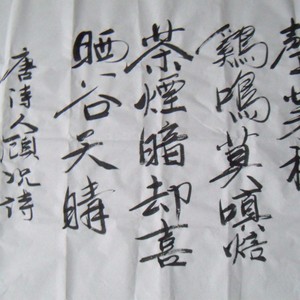 鷄鳴莫嗔焙
茶煙暗却喜
晒谷天晴
唐诗人顧况诗